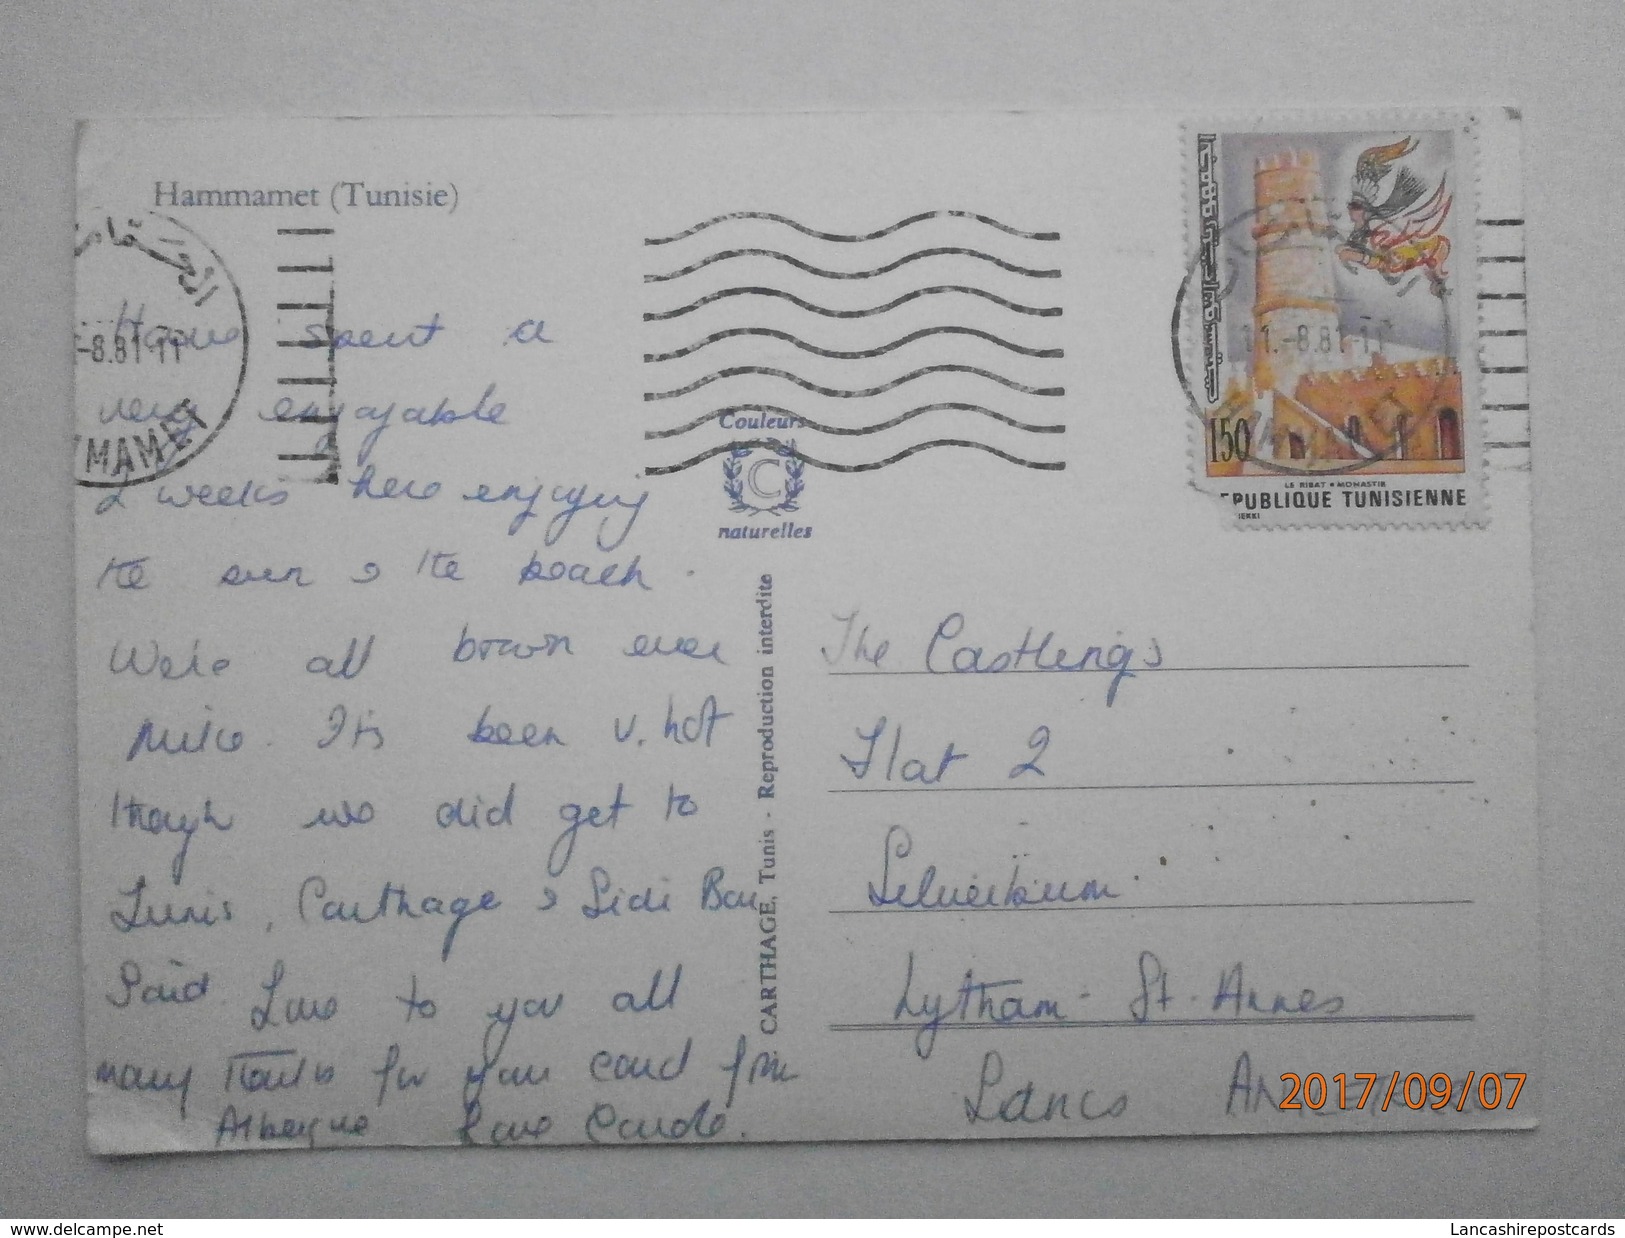 Hammamet (Tunisie)
-8.81-11
MAMET
Have spent a
very enjoyable
2 weeks here enjoying
the sun & the beach.
We're all brown even
Mike. Its been v. hot
though we did get to
Tunis, Carthage & Sidi Bou
Said. Love to you all
many thanks for your card from
Love Carole.
Couleurs
C
naturelles
CARTHAGE, Tunis - Reproduction interdite
11.-8.81-11
150
LE RIBAT • MONASTIR
EPUBLIQUE TUNISIENNE
The Castlengs
Flat 2
Lytham - St. Annes
Lancs
2017/09/07
www.delcampe.net
Lancashirepostcards